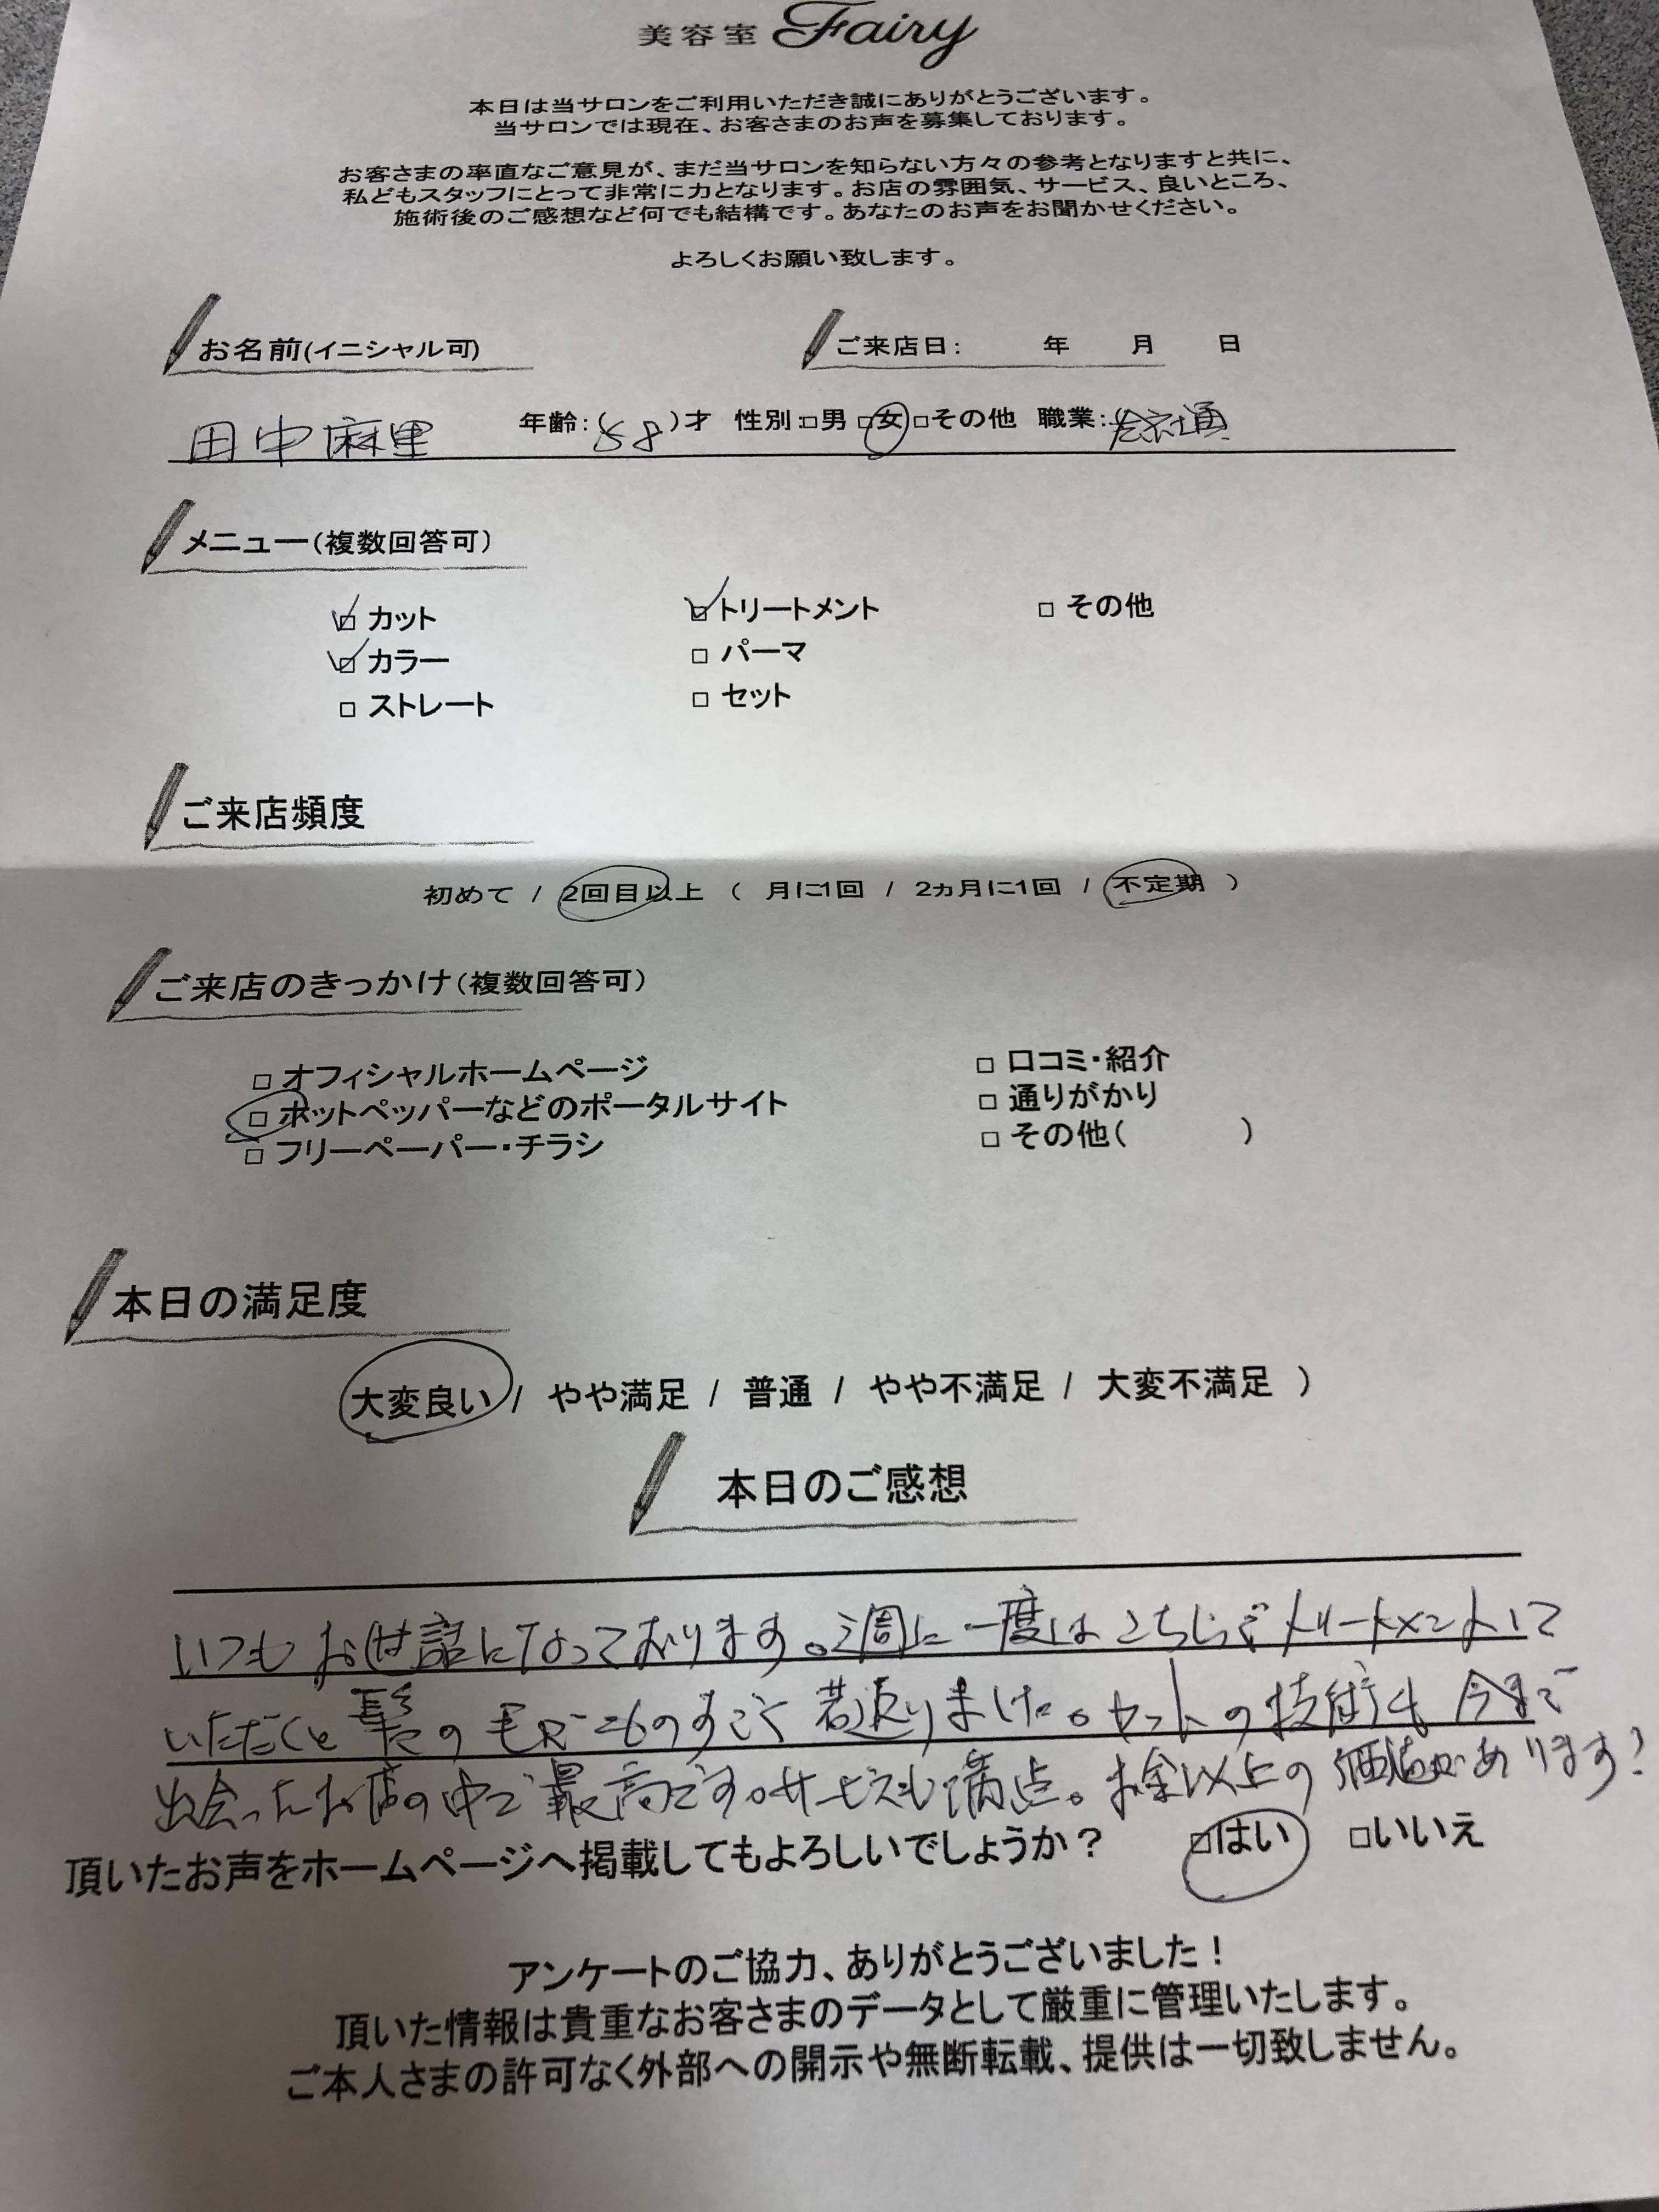 美容室 Fairy
本日は当サロンをご利用いただき誠にありがとうございます。
当サロンでは現在、お客さまのお声を募集しております。
お客さまの率直なご意見が、まだ当サロンを知らない方々の参考となりますと共に、
私どもスタッフにとって非常に力となります。お店の雰囲気、サービス、良いところ、
施術後のご感想など何でも結構です。あなたのお声をお聞かせください。
よろしくお願い致します。
お名前(イニシャル可) ご来店日: 年 月 日
田中麻里 年齢:(58)才 性別:□男 □女 □その他 職業:
メニュー(複数回答可)
☑ カット ☑ トリートメント □ その他
☑ カラー □ パーマ
□ ストレート □ セット
ご来店頻度
初めて / 2回目以上 ( 月に1回 / 2ヵ月に1回 / 不定期 )
ご来店のきっかけ(複数回答可)
□ オフィシャルホームページ □ 口コミ・紹介
□ ホットペッパーなどのポータルサイト □ 通りがかり
□ フリーペーパー・チラシ □ その他( )
本日の満足度
大変良い / やや満足 / 普通 / やや不満足 / 大変不満足 )
本日のご感想
いつもお世話になっております。2週に一度はこちらでトリートメントして
いただくと髪の毛がものすごく若返りました。カットの技術も今まで
出会ったお店の中で最高です。サービスも満点。お金以上の価値があります!
頂いたお声をホームページへ掲載してもよろしいでしょうか? □はい □いいえ
アンケートのご協力、ありがとうございました!
頂いた情報は貴重なお客さまのデータとして厳重に管理いたします。
ご本人さまの許可なく外部への開示や無断転載、提供は一切致しません。